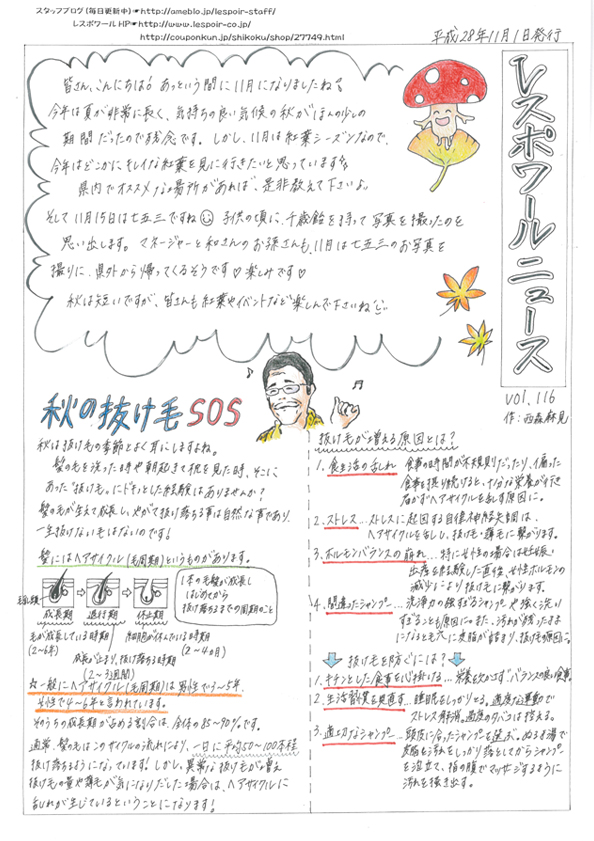 スタッフブログ(毎日更新中)☛http://ameblo.jp/lespoir-staff/
レスポワールHP☛http://www.lespoir-co.jp/
http://couponkun.jp/shikoku/shop/27749.html
平成28年11月1日発行
レスポワールニュース
vol.116
作:西森麻見
皆さん、こんにちは! あっという間に11月になりましたね。
今年は夏が非常に長く、気持ちの良い気候の秋がほんの少しの
期間だったので残念です。しかし、11月は紅葉シーズンなので、
今年はどこかにキレイな紅葉を見に行きたいと思っています
県内でオススメな場所があれば、是非教えて下さい。
そして11月15日は七五三ですね 子供の頃に、千歳飴を持って写真を撮ったのを
思い出します。マネージャーと和さんのお孫さんも、11月は七五三のお写真を
撮りに、県外から帰ってくるそうです♡楽しみです♡
秋は短いですが、皆さんも紅葉やイベントなど楽しんで下さいね
秋の抜け毛SOS
秋は抜け毛の季節とよく耳にしますよね。
髪の毛を洗った時や朝起きて枕を見た時、そこに
あった“抜け毛”にドキッとした経験はありませんか?
髪の毛が生えて成長し、やがて抜け落ちる事は自然な事であり、
一生抜けない毛はないのです!
髪にはヘアサイクル(毛周期)というものがあります。
成長期 退行期 休止期
1本の毛髪が成長し
はじめてから
抜け落ちるまでの周期のこと
毛が成長している時期
(2~6年)
成長が止まり、抜け落ちる時期
(2~3週間)
細胞が休んでいる時期
(2~4カ月)
☆一般にヘアサイクル(毛周期)は男性で3~5年、
女性で4~6年と言われています。
そのうちの成長期が占める割合は、全体の85~90%です。
通常、髪の毛はこのサイクルの流れにより、一日に平均50~100本程
抜け落ちるようになっています! しかし、異常な抜け毛が増え
抜け毛の量や薄毛が気になりだした場合は、ヘアサイクルに
乱れが生じているということになります!
抜け毛が増える原因とは?
1.食生活の乱れ 食事の時間が不規則だったり、偏った
食事を摂り続けると、十分な栄養が行き
届かずヘアサイクルを乱す原因に。
2.ストレス…ストレスに起因する自律神経失調は、
ヘアサイクルを乱し、抜け毛・薄毛に繋がります。
3.ホルモンバランスの崩れ…特に女性の場合は妊娠・
出産を経験した直後、女性ホルモンの
減少により抜け毛に繋がります。
4.間違ったシャンプー…洗浄力の強すぎるシャンプーや強く洗い
すぎることも原因に。また、汚れが残ったまま
になると毛穴に皮脂が詰まり、抜け毛の原因に。
抜け毛を防ぐには?
1.キチンとした食事を心掛ける…栄養を欠かさずバランスの良い食事
2.生活習慣を見直す…睡眠をしっかりとる。適度な運動で
ストレス解消。過度のタバコは控える。
3.適切なシャンプー…頭皮に合ったシャンプーを選ぶ。ぬるま湯で
皮脂と汚れをしっかり落としてからシャンプー
を泡立て、指の腹でマッサージするように
汚れを掻き出す。